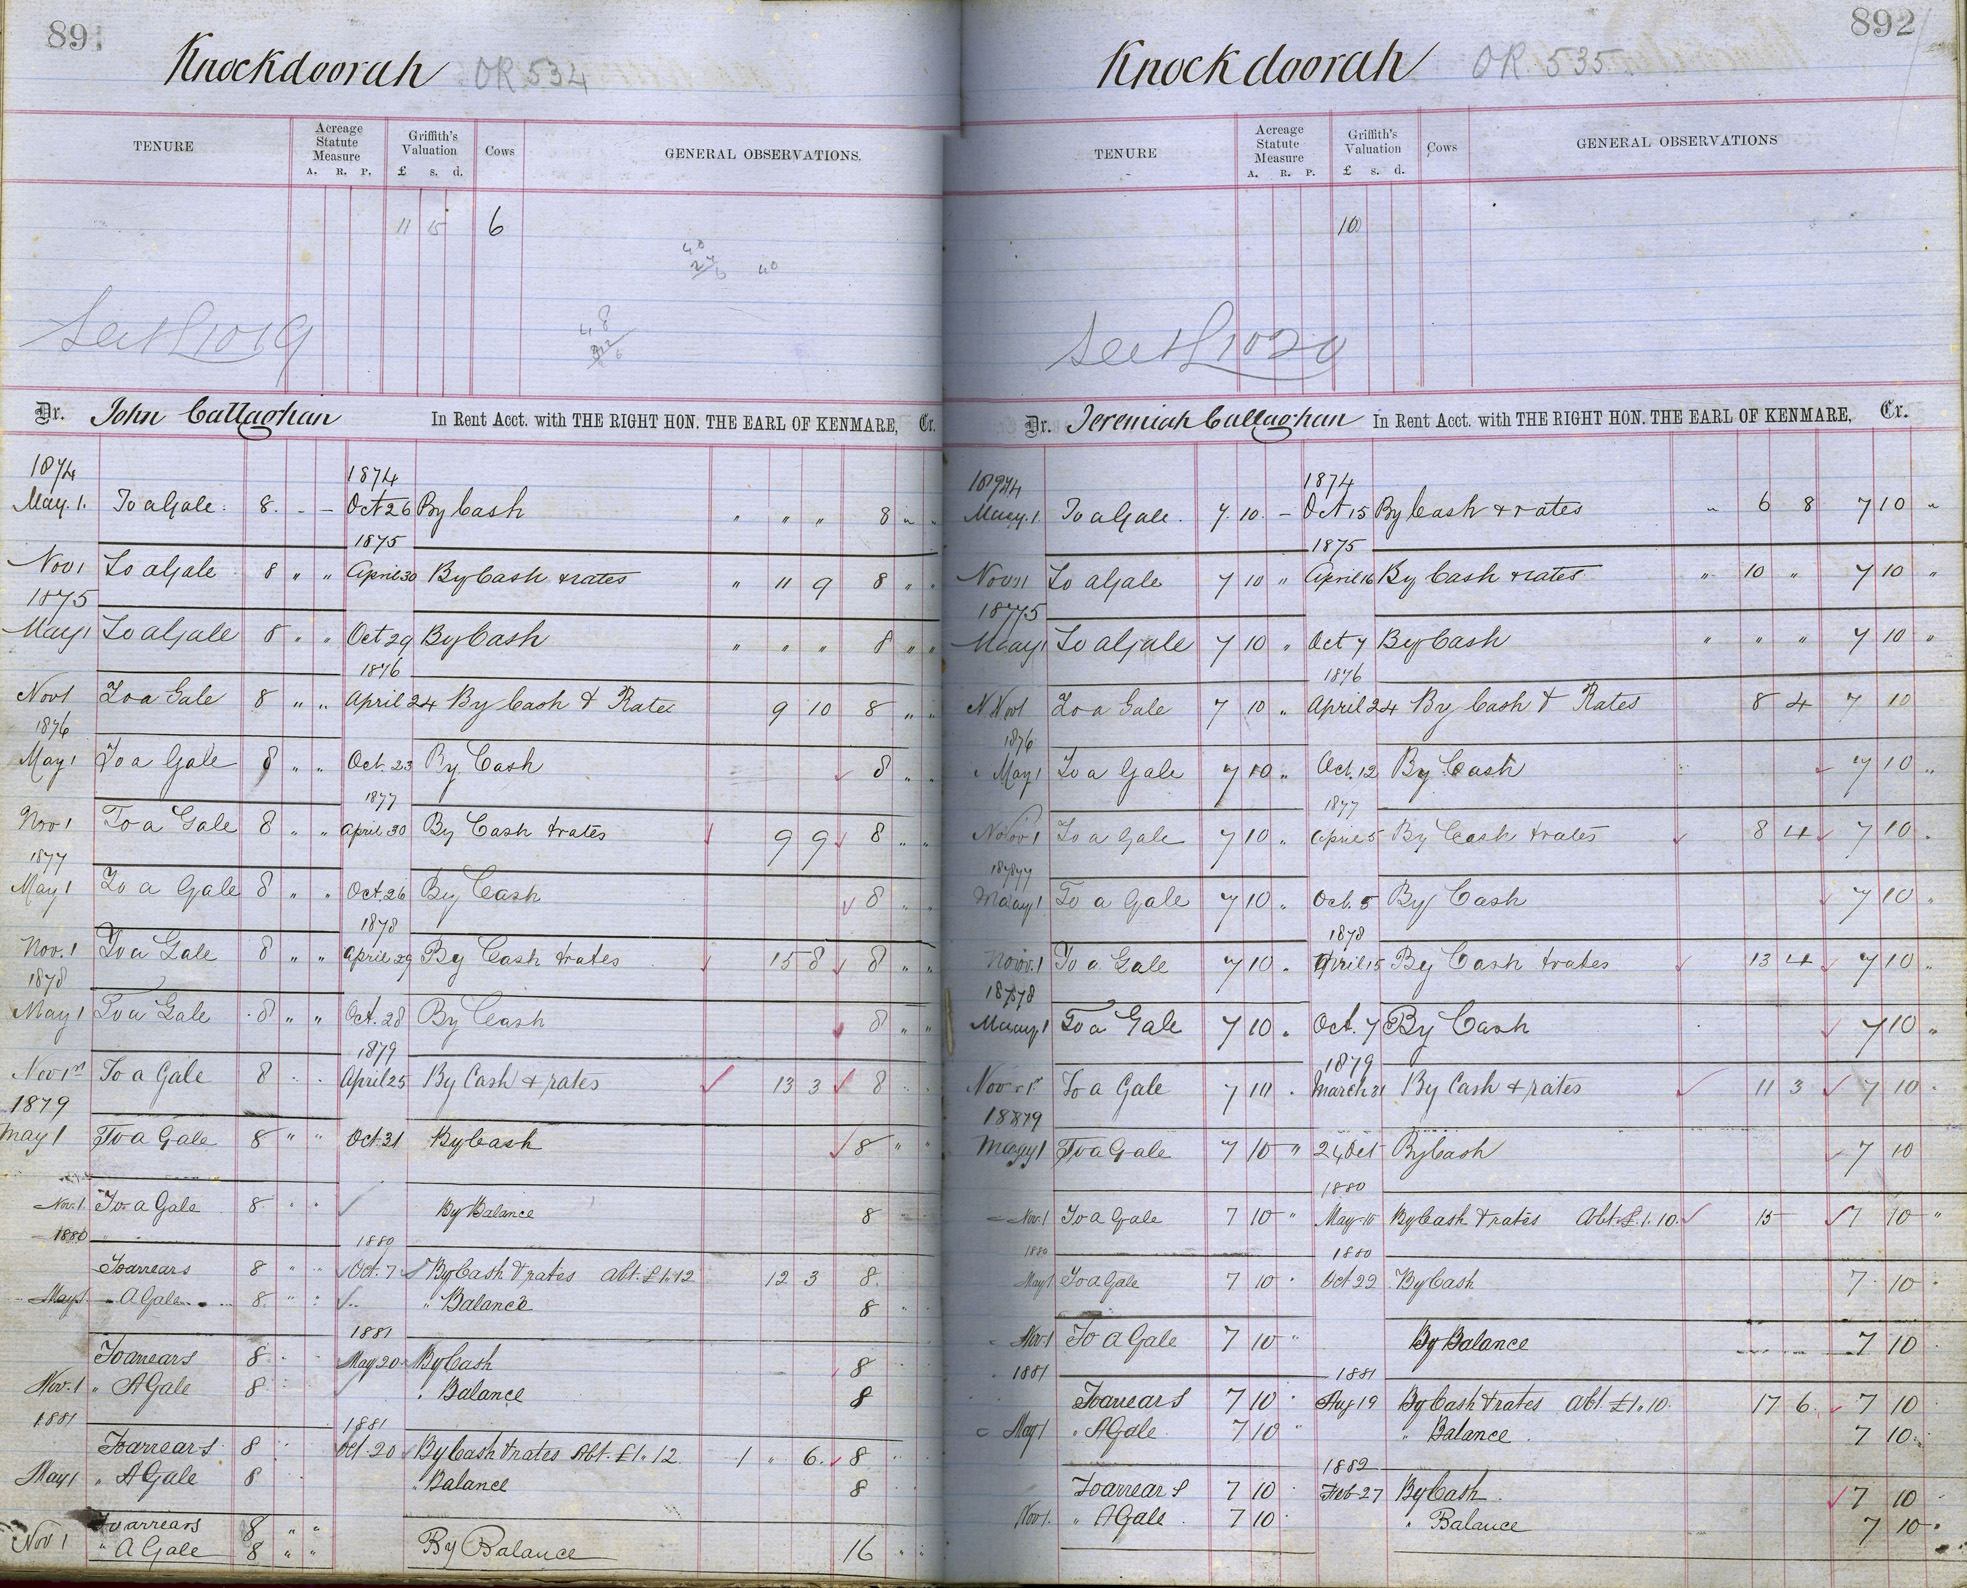 891
Knockdoorah OR 534
TENURE Acreage Statute Measure A. R. P. Griffith's Valuation £ s. d. Cows GENERAL OBSERVATIONS.
11 15 6
40
See L 1019
48
Dr. John Callaghan In Rent Acct. with THE RIGHT HON. THE EARL OF KENMARE, Cr.
1874 1874
May. 1. To a Gale. 8. - - Oct 26 By Cash " " " 8 " "
1875
Nov 1 To a Gale 8 " " April 30 By Cash & rates " 11 9 8 " "
1875
May 1 To a Gale 8 " " Oct 29 By Cash " " " 8 " "
1876
Nov 1 To a Gale 8 " " April 24 By Cash & Rates 9 10 8 " "
1876
May 1 To a Gale 8 " " Oct. 23 By Cash 8 " "
1877
Nov 1 To a Gale 8 " " April 30 By Cash & rates 9 9 8 " "
1877
May 1 To a Gale 8 " " Oct. 26 By Cash 8 " "
1878
Nov. 1 To a Gale 8 " " April 29 By Cash & rates 15 8 8 " "
1878
May 1 To a Gale 8 " " Oct. 28 By Cash 8 " "
1879
Nov 1st To a Gale 8 " " April 25 By Cash & rates 13 3 8 " "
1879
May 1 To a Gale 8 " " Oct. 31 By Cash 8 " "
Nov. 1. To a Gale 8 " " By Balance 8
1880 1880
To arrears 8 " " Oct. 7 By Cash & rates Abt. £1.12 12 3 8.
May 1 " A Gale 8. " " " Balance 8 "
1881
To arrears 8 " " May 20 By Cash 8
Nov. 1 " A Gale 8 " " " Balance 8
1881 1881
To arrears 8 " Oct. 20 By Cash & rates Abt. £1.12. 1 " 6. 8 "
May 1 " A Gale 8 " Balance 8 "
To arrears 8 " "
Nov 1 " A Gale 8 " " By Balance 16 " "
892
Knockdoorah OR. 535
TENURE Acreage Statute Measure A. R. P. Griffith's Valuation £ s. d. Cows GENERAL OBSERVATIONS
10
See L 1020
Dr. Jeremiah Callaghan In Rent Acct. with THE RIGHT HON. THE EARL OF KENMARE, Cr.
1874 1874
May. 1. To a Gale. 7. 10. - Oct 15 By Cash & rates " 6 8 7 10 "
1875
Nov 1 To a Gale 7 10 " April 16 By Cash & rates " 10 " 7 10 "
1875
May 1 To a Gale 7 10 " Oct 7 By Cash " " " 7 10 "
1876
Nov 1 To a Gale 7 10 " April 24 By Cash & Rates 8 4 7 10
1876
May 1 To a Gale 7 10 " Oct. 12 By Cash 7 10 "
1877
Nov 1 To a Gale 7 10 " April 5 By Cash & rates 8 4 7 10 "
1877
May 1 To a Gale 7 10 " Oct. 5 By Cash 7 10 "
1878
Nov. 1 To a Gale 7 10 " April 15 By Cash & rates 13 4 7 10 "
1878
May 1 To a Gale 7 10 " Oct. 7 By Cash 7 10 "
1879
Nov 1st To a Gale 7 10 " March 31 By Cash & rates 11 3 7 10 "
1879
May 1 To a Gale 7 10 " 24 Oct By Cash 7 10
1880
Nov. 1 To a Gale 7 10 " May 10 By Cash & rates Abt. £1.10. 15 7 10 "
1880 1880
May 1 To a Gale 7 10 " Oct 22 By Cash 7 10 "
Nov. 1 To a Gale 7 10 " By Balance 7 10
1881 1881
To arrears 7 10 " Aug 19 By Cash & rates Abt. £1.10. 17 6. 7 10
May 1 " A Gale. 7 10 " " Balance. 7 10
1882
To arrears 7 10 " Feb 27 By Cash. 7 10
Nov 1. " A Gale. 7 10 " " Balance 7 10 "